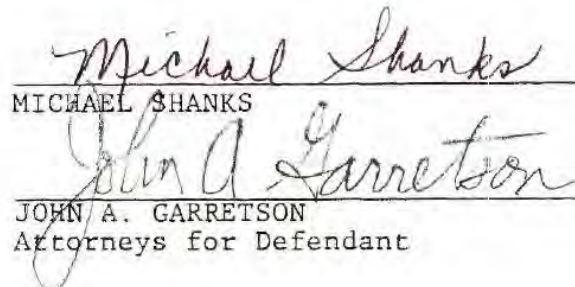 Michael Shanks
MICHAEL SHANKS
John A Garretson
JOHN A. GARRETSON
Attorneys for Defendant